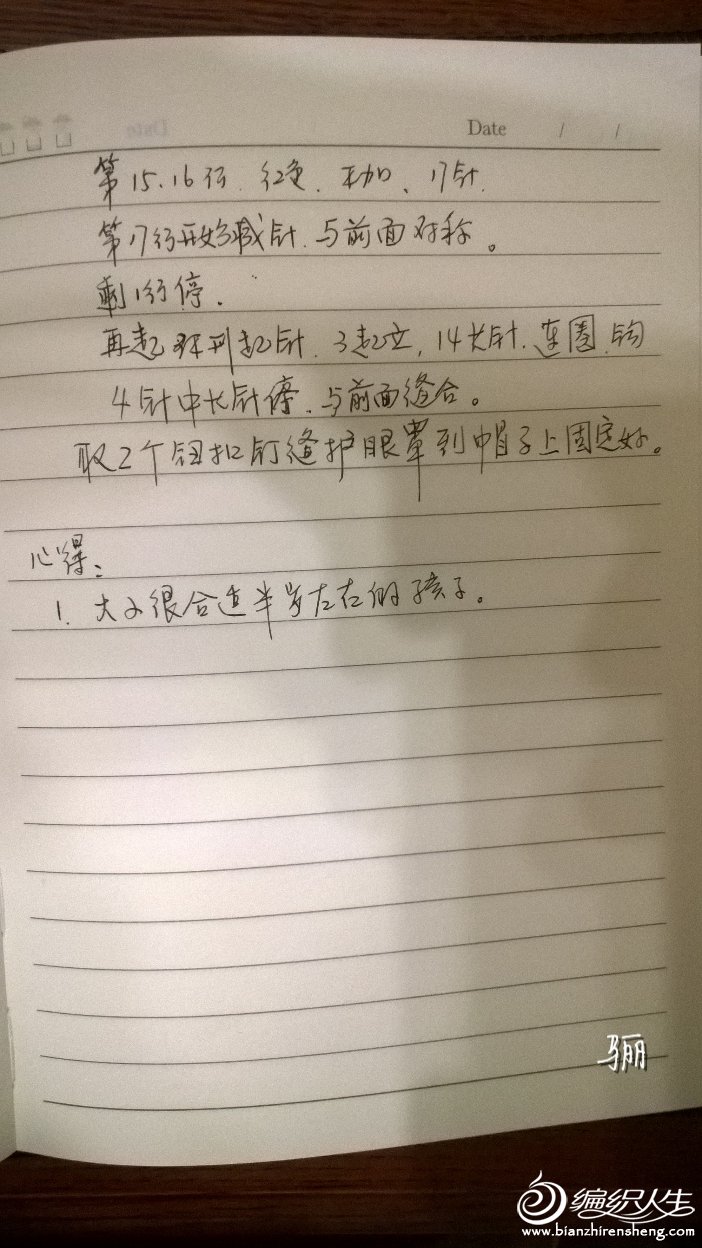 Date / /
第15.16行.红色.不加、17针.
第17行开始减针.与前面对称。
剩1行停.
再起环形起针.3起立,14长针.连圈.钩
4针中长针停.与前面缝合。
取2个钮扣钉缝护眼罩到帽子上固定好。
心得:
1. 大小很合适半岁左右的孩子。
骊
编织人生
www.bianzhirensheng.com